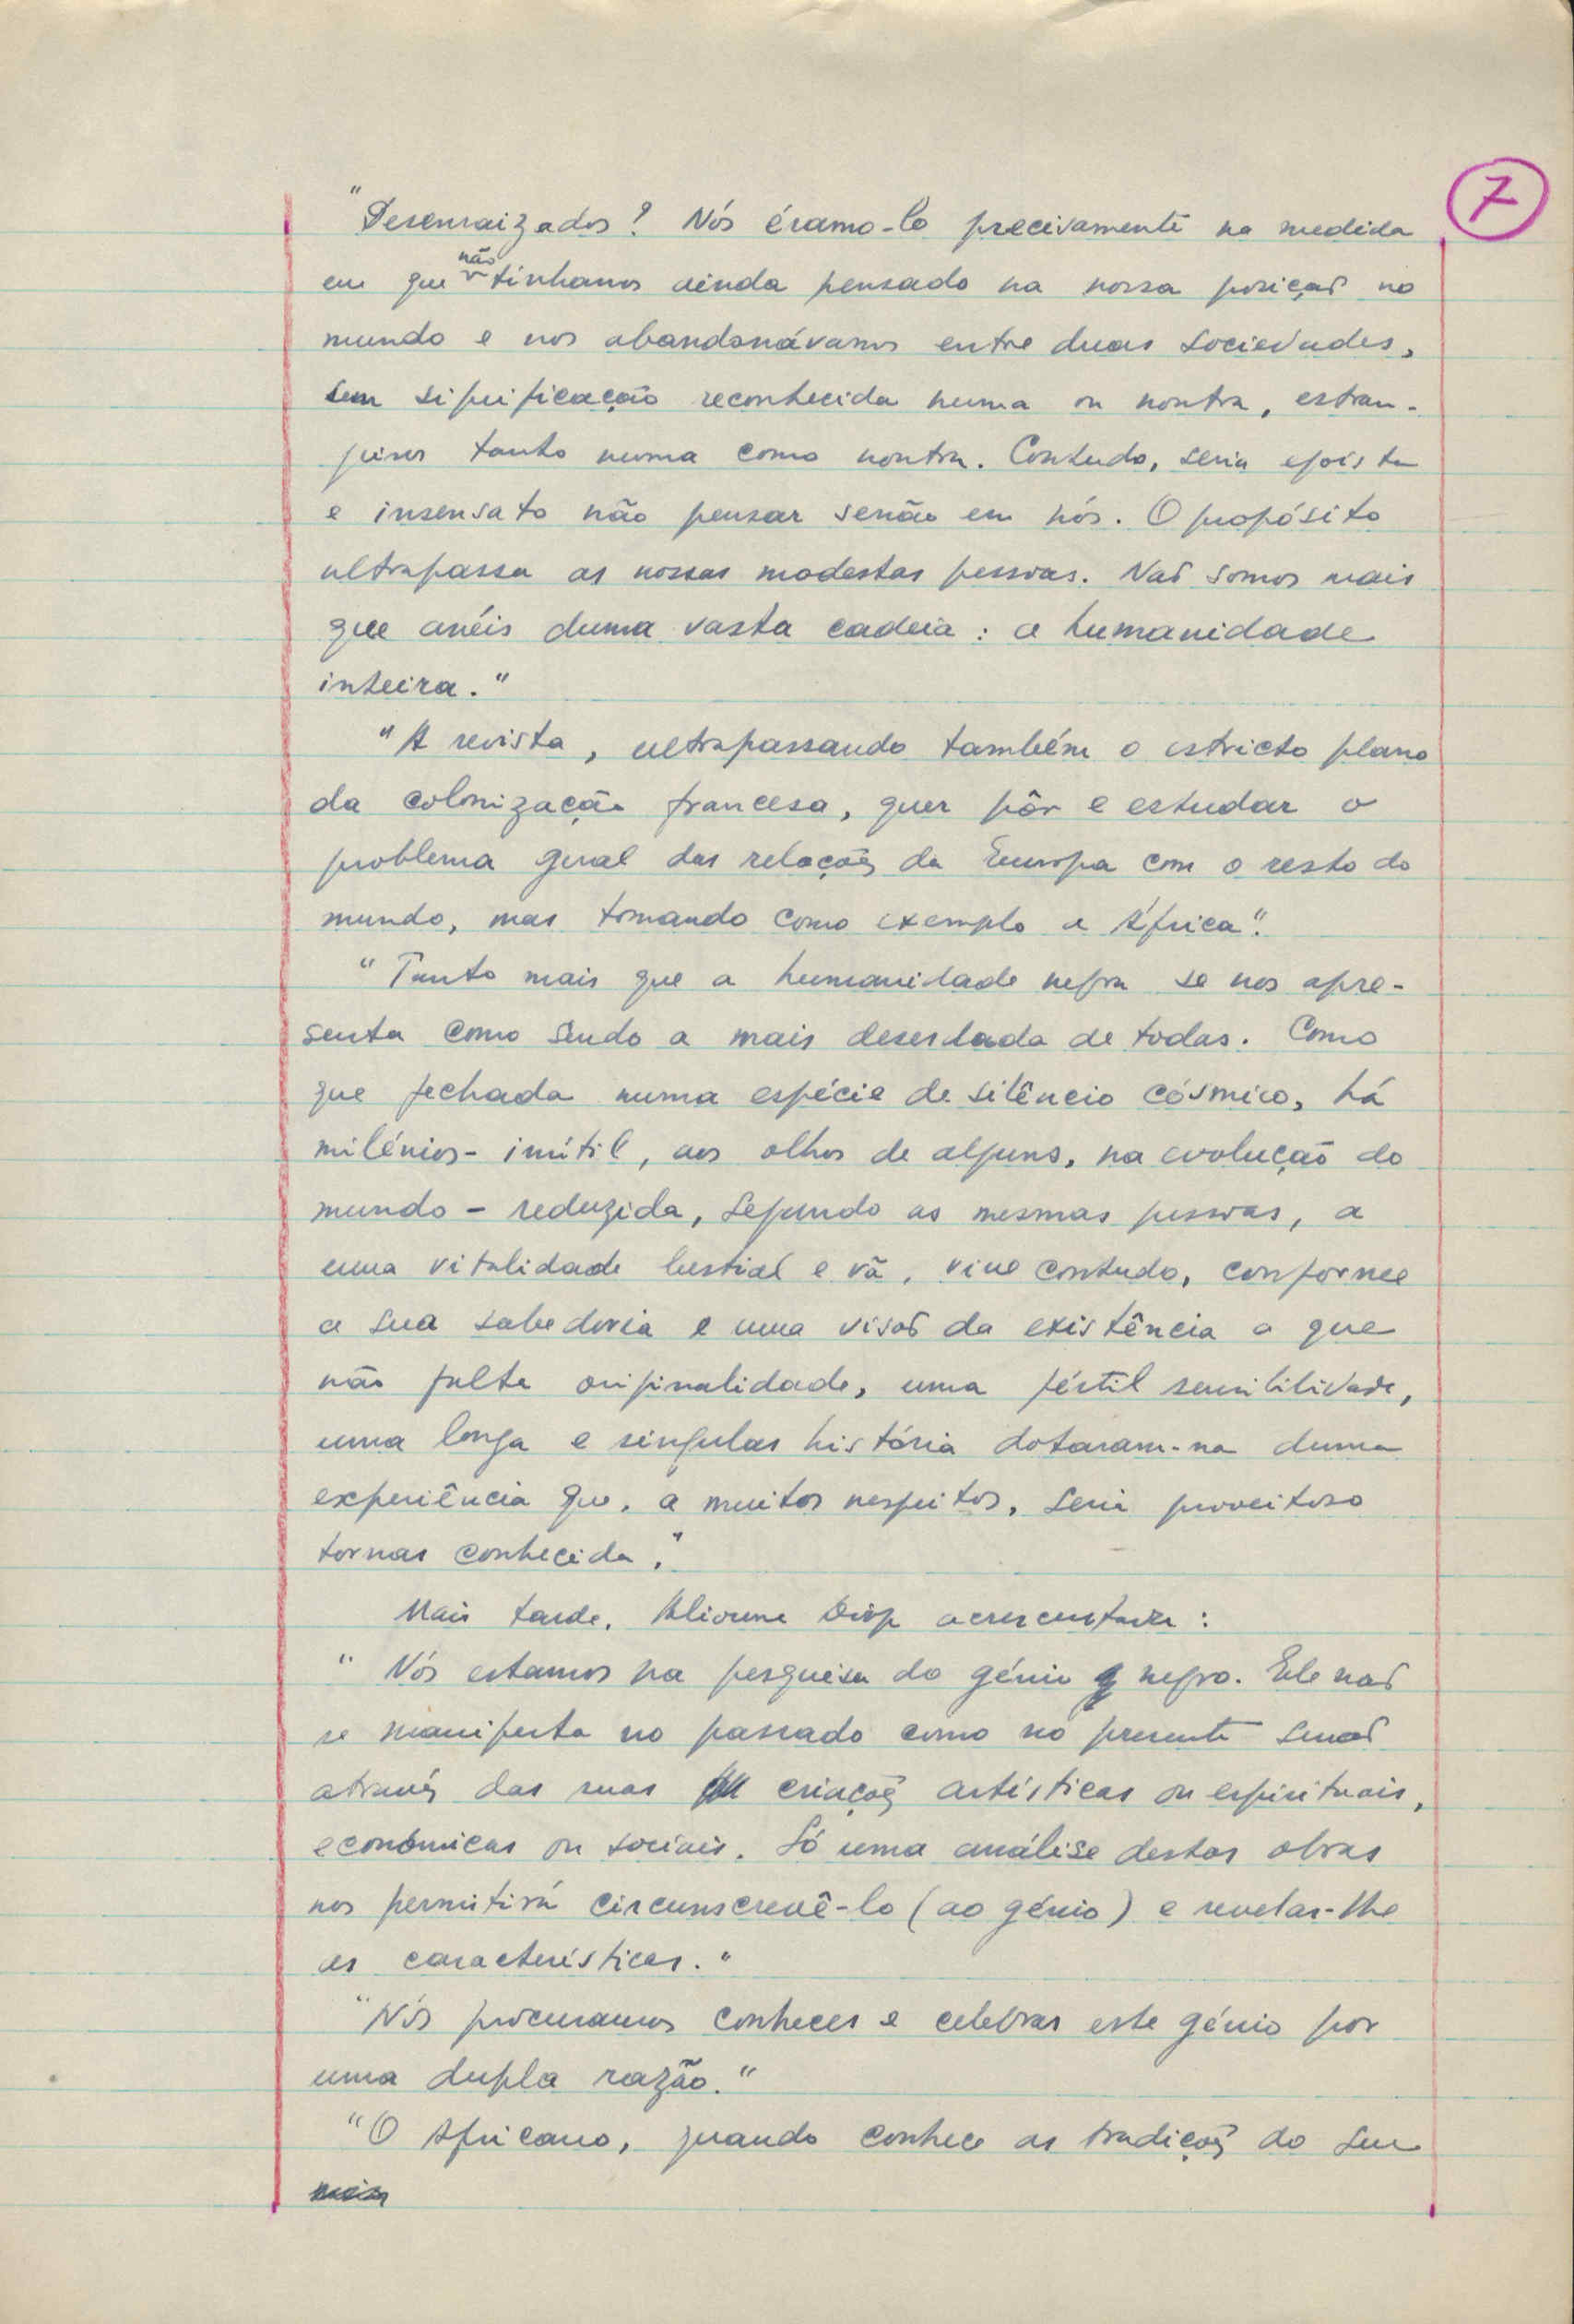 7
"Desenraizados? Nós éramo-lo precisamente na medida
em que não tínhamos ainda pensado na nossa posição no
mundo e nos abandonávamos entre duas sociedades,
sem significação reconhecida numa ou noutra, estran-
geiros tanto numa como noutra. Contudo, seria egoísta
e insensato não pensar senão em nós. O propósito
ultrapassa as nossas modestas pessoas. Não somos mais
que anéis duma vasta cadeia: a humanidade
inteira."
"A revista, ultrapassando também o estricto plano
da colonização francesa, quer pôr e estudar o
problema geral das relações da Europa com o resto do
mundo, mas tomando como exemplo a África."
"Tanto mais que a humanidade negra se nos apre-
senta como sendo a mais deserdada de todas. Como
que fechada numa espécie de silêncio cósmico, há
milénios - inútil, aos olhos de alguns, na evolução do
mundo - reduzida, segundo as mesmas pessoas, a
uma vitalidade bestial e vã, vive contudo, conforme
a sua sabedoria e uma visão da existência a que
não falta originalidade, uma fértil sensibilidade,
uma longa e singular história dotaram-na duma
experiência que, a muitos respeitos, seria proveitoso
tornar conhecida."
Mais tarde, Alioune Diop acrescentava:
"Nós estamos na pesquisa do génio negro. Ele não
se manifesta no passado como no presente senão
através das suas criações artísticas ou espirituais,
económicas ou sociais. Só uma análise destas obras
nos permitirá circunscrevê-lo (ao génio) e revelar-lhe
as características."
"Nós procuramos conhecer e celebrar este génio por
uma dupla razão."
"O Africano, quando conhece as tradições do seu